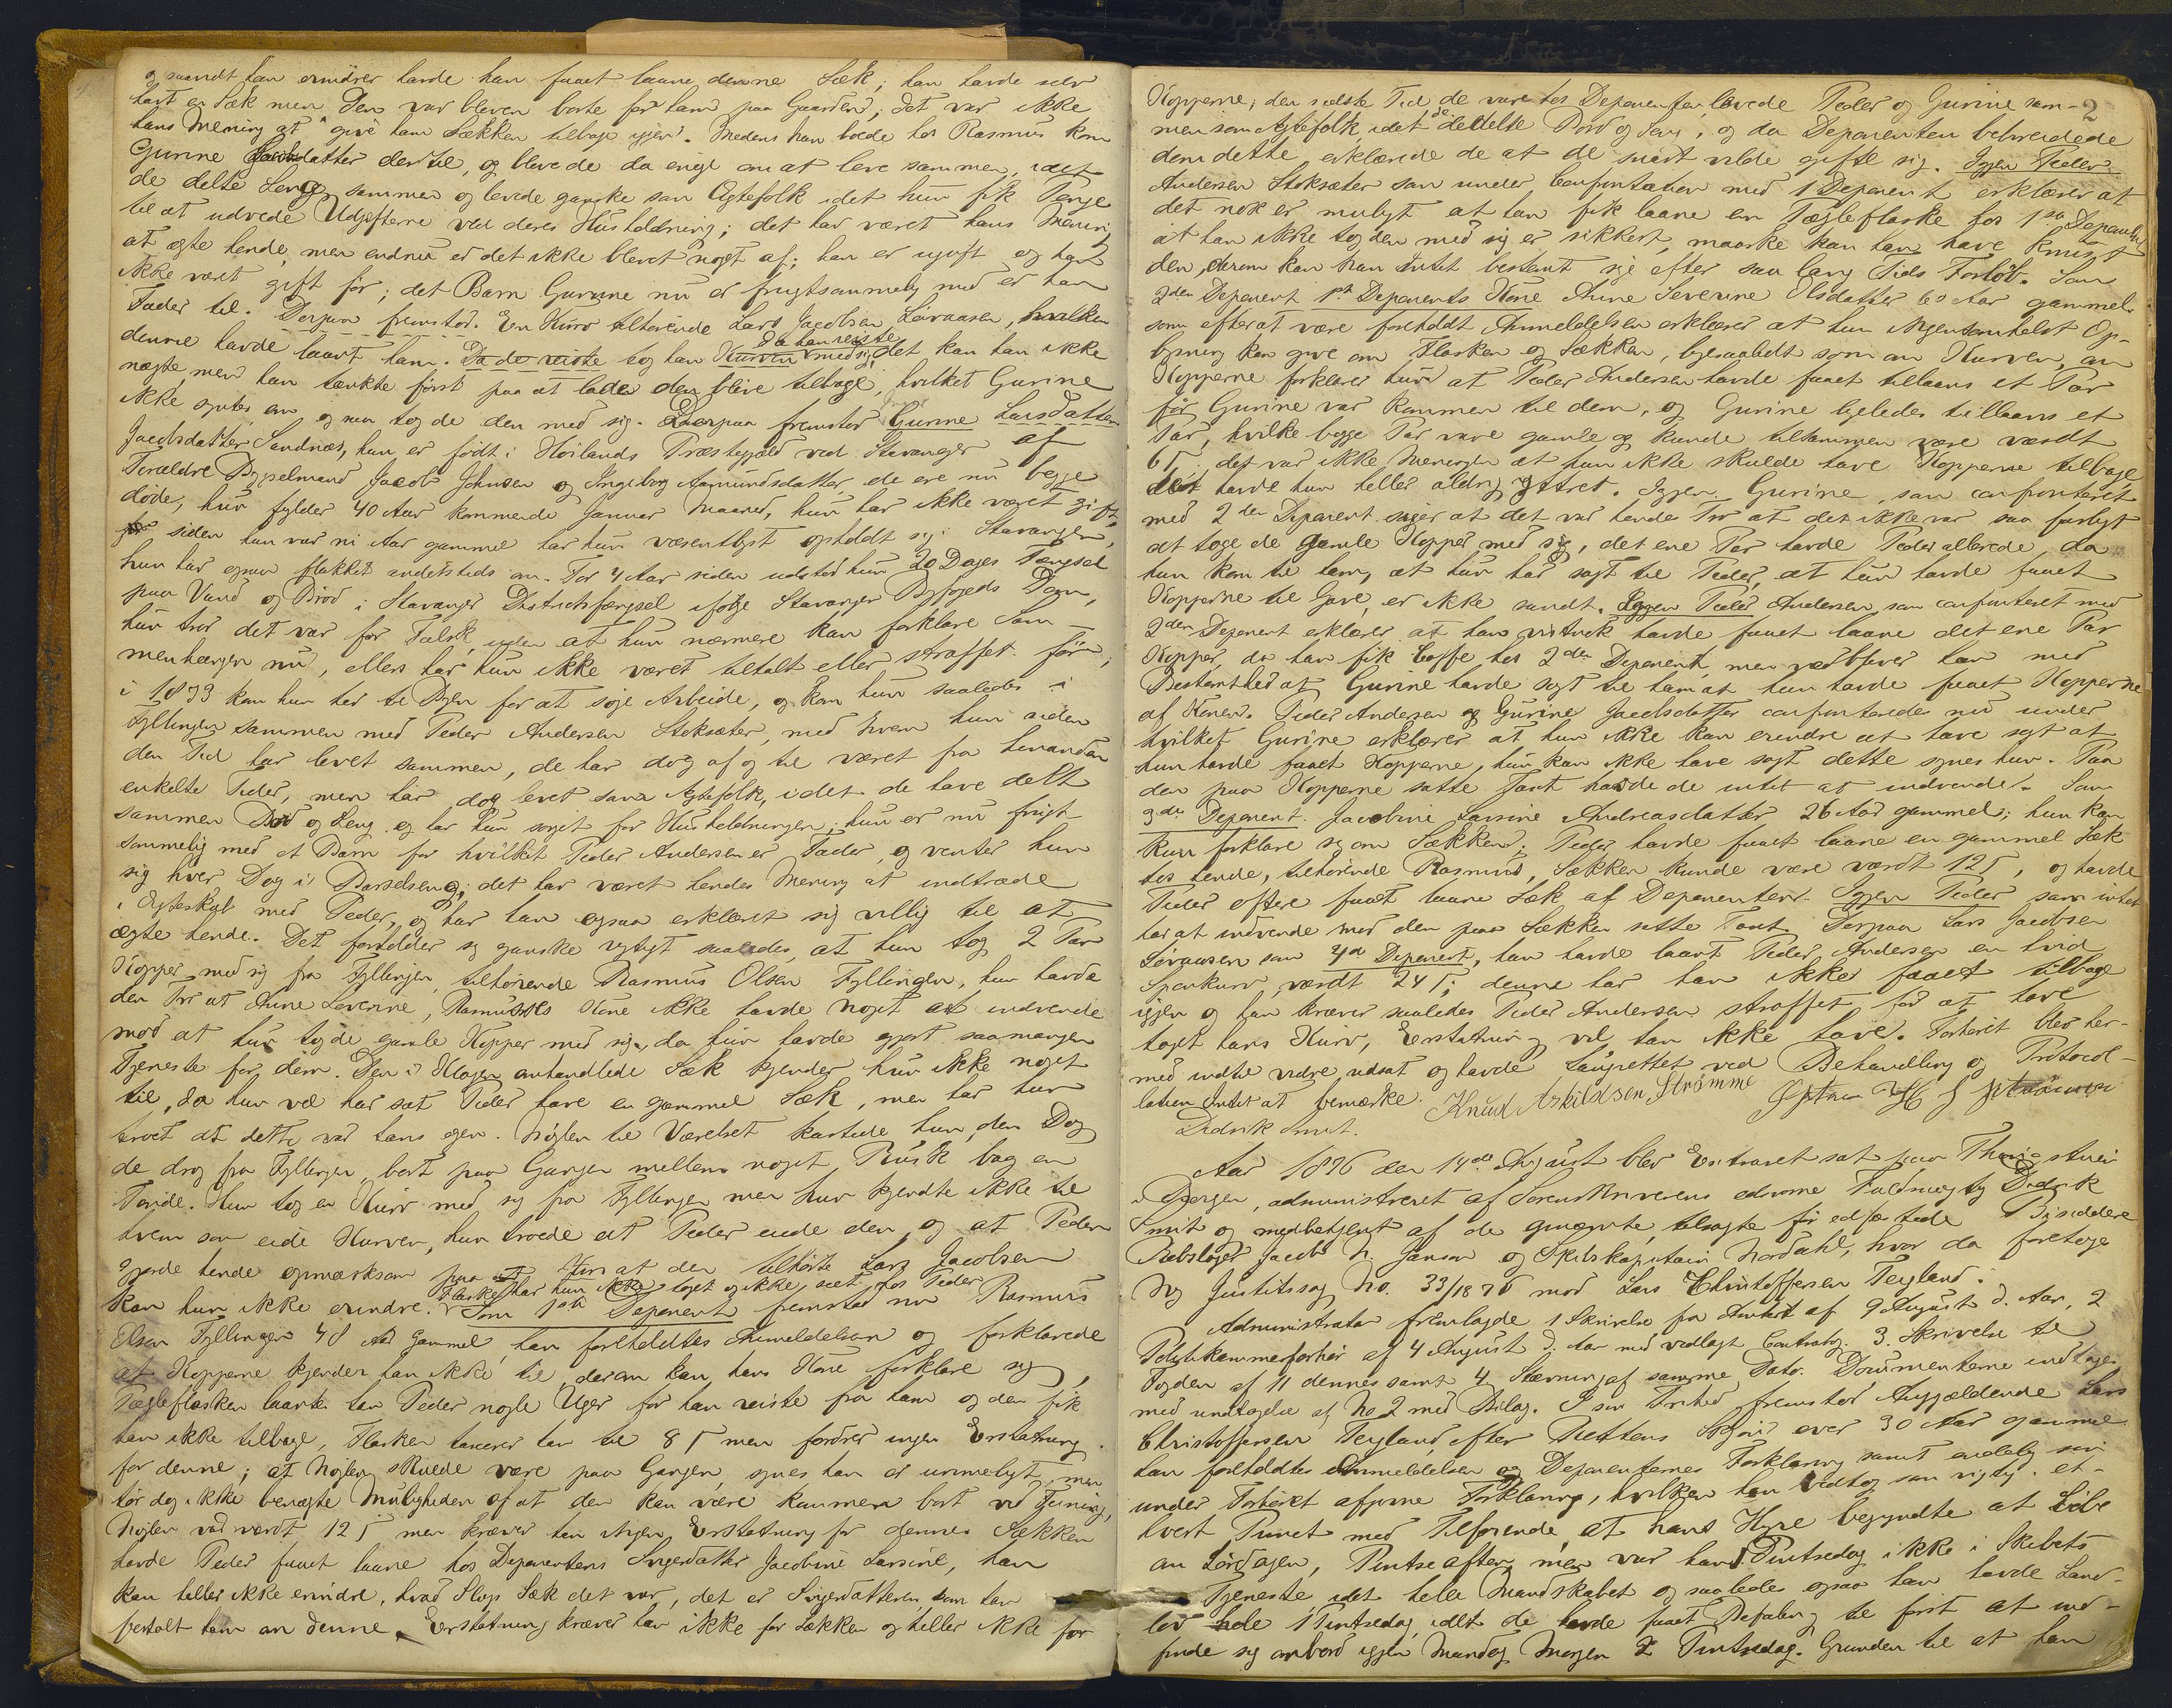 og saavidt han erindrer havde han faaet laane denne Sæk; han havde selv
havt en Sæk men den var bleven borte for ham paa Gaarden; det var ikke
hans Mening at give ham Sækken tilbage igjen. Medens han boede hos Rasmus kom
Gurine Jacobsdatter dertil, og blevede da enige om at leve sammen, idet
de delte Leng sammen og levede ganske som Ægtefolk idet hun fik Penge
til at udrede Udgifterne ved deres Husholdning; det har været hans Mening
at ægte hende, men endnu er det ikke blevet noget af; han er ugift og har
ikke været gift før; det Barn Gurine nu er frugtsommelig med er han
Fader til. Derpaa fremstod. En Kurv tilhørende Lars Jacobsen Løvaasen, hvilken
denne havde laant ham. Da de reiste tog han Kurven med sig, det kan han ikke
da han reiste
nægte, men han tænkte først paa at lade den blive tilbage, hvilket Gurine
ikke syntes om og saa tog de den med sig. Derpaa fremstod Gurine Larsdatter
Jacobsdatter Sandnæs, hun er født i Høilands Præstegjæld ved Stavanger af
Forældre Bygselmand Jacob Johnsen og Ingeborg Aamundsdatter de ere nu begge
døde, hun fylder 40 Aar kommende Januar Maaned, hun har ikke været gift,
siden hun var ni Aar gammel har hun væsentligst opholdt sig i Stavanger,
hun har ogsaa flakket andetsteds om. For 4 Aar siden udstod hun 20 Dages Fængsel
paa Vand og Brød i Stavanger Distriktsfængsel ifølge Stavanger Byfogeds Dom,
hun tror det var for Falsk, uden at hun nærmere kan forklare Sam-
menhængen nu, ellers har hun ikke været tiltalt eller straffet før;
i 1873 kom hun her til Byen for at søge Arbeide, og kom hun saaledes i
Fyllingen sammen med Peder Andersen Stoksæter, med hvem hun siden
den Tid har levet sammen, de har dog af og til været fra hinanden
enkelte Tider, men har dog levet som Ægtefolk, idet de have delt
sammen Bord og Seng og har hun sørget for Husholdningen; hun er nu frugt-
sommelig med et Barn for hvilket Peder Andersen er Fader, og venter hun
sig hver Dag i Barselseng; det har været hendes Mening at indtræde
i Ægteskab med Peder, og har han ogsaa erklæret sig villig til at
ægte hende. Det forholder sig ganske rigtigt saaledes, at hun tog 2 Par
Kopper med sig fra Fyllingen, tilhørende Rasmus Olsen Fyllingen, hun havde
den Tro at Anne Severine, Rasmus's Kone ikke havde noget at indvende
mod at hun tog de gamle Kopper med sig, da hun havde gjort saamangen
Tjeneste for dem. Den i Klagen omhandlede Sæk kjender hun ikke noget
til, da hun vel har set Peder have en gammel Sæk, men har hun
troet at dette var hans egen. Nøglen til Værelset kastede hun, den Dag
de drog fra Fyllingen, bort paa Gangen mellem noget Rusk bag en
Tønde. Hun tog en Kurv med sig fra Fyllingen men hun kjendte ikke til
hvem som eide Kurven, hun troede at Peder eiede den, og at Peder
gjorde hende opmærksom paa at den tilhørte Lars Jacobsen
kan hun ikke erindre. Som 1ste Deponent fremstod nu Rasmus
Flaske har hun ikke taget og ikke seet hos Peder
Olsen Fyllingen 48 Aar gammel, han foreholdtes Anmeldelsen og forklarede
at Kopperne kjender han ikke til, derom kan hans Kone forklare sig,
Tægleflasken laante han Peder nogle Uger før han reiste fra ham og den fik
han ikke tilbage, Flasken taxerer han til 8 ſ men fordrer ingen Erstatning
for denne; at Nøglen skulde være paa Gangen, synes han er urimeligt, men
tør dog ikke benægte Muligheden af at den kan være kommen bort ved Feining,
Nøglen var værdt 12 ſ men kræver han ingen Erstatning for denne. Sækken
havde Peder faaet laane hos Deponentens Svigerdatter Jacobine Larsine, han
kan heller ikke erindre, hvad Slags Sæk det var, det er Svigerdatteren, som har
fortalt ham om denne. Erstatning kræver han ikke for Sækken og heller ikke for
2
Kopperne; den sidste Tid de vare hos Deponenten, levede Peder og Gurine sam-
men som Ægtefolk idet de deltelte Bord og Seng, og da Deponenten bebreidede
dem dette, erklærede de at de snart vilde gifte sig. Igjen Peder
Andersen Stoksæter som under Confrontation med 1 Deponent erklærer at
det nok er muligt at han fik laane en Tægleflaske hos 1ste Deponent
at han ikke tog den med sig er sikkert, maaske kan han have knust
den, derom kan han Intet bestemt sige efter saa lang Tids Forløb. Som
2den Deponent 1ste Deponents Kone Anne Severine Olsdatter 60 Aar gammel
som efterat være foreholdt Anmeldelsen erklærer at hun ingensomhelst Op-
lysning kan give om Flasken og Sækken, ligesaalidt som om Kurven, om
Kopperne forklarer hun at Peder Andersen havde faaet tillaans et Par
før Gurine var kommen til dem, og Gurine ligeledes tillaans et
Par, hvilke begge Par vare gamle og kunde tilsammen være værdt
6 ſ, det var ikke Meningen at hun ikke skulde have Kopperne tilbage
det havde hun heller aldrig yttret. Igjen Gurine, som confronteret
med 2den Deponent siger at det var hendes Tro at det ikke var saa farligt
at tage de gamle Kopper med sig, det ene Par havde Peder allerede, da
hun kom til ham, at hun har sagt til Peder, at hun havde faaet
Kopperne til Gave, er ikke sandt. Igjen Peder Andersen, som confronteret med
2den Deponent erklærer at han vistnok havde faaet laane det ene Par
Kopper, da han fik Caffe hos 2den Deponent men vedbliver han med
Bestemthed at Gurine havde sagt til ham at hun havde faaet Kopperne
af Konen. Peder Andersen og Gurine Jacobsdatter confronteredes nu under
hvilket Gurine erklærer at hun ikke kan erindre at have sagt at
hun havde faaet Kopperne, hun kan ikke have sagt dette synes hun. Paa
den paa Kopperne satte Taxt havde de intet at indvende. Som
3die Deponent. Jacobine Larsine Andreasdatter 26 Aar gammel; hun kan
kun forklare sig om Sækken; Peder havde faaet laane en gammel Sæk
hos hende, tilhørende Rasmus, Sækken kunde være værdt 12 ſ, og havde
Peder oftere faaet laane Sæk af Deponenten. Igjen Peder som intet
har at indvende mod den paa Sækken satte Taxt. Derpaa Lars Jacobsen
Løvaasen som 4de Deponent, han havde laant Peder Andersen en hvid
Sponkurv, værdt 24 ſ; denne har han ikke faaet tilbage
igjen og han kræver saaledes Peder Andersen straffet for at have
taget hans Kurv, Erstatning vil han ikke have. Forhøret blev her-
med indtil videre udsat og havde Laugrettet ved Behandling og Protocol-
lationen Intet at bemærke. Knud Askildsen Strømme
Didrik Smit.
Aar 1876 den 14de August blev Extraret sat paa Thinghstuen
i Bergen, administreret af Sorenskriverens edsvorne Fuldmægtig Didrik
Smit og medbetjent af de opnævnte, tilsagte før edfæstede Bisiddere
Rebslager Jacob N. Janson og Skibskapitain Nordahl, hvor da foretoges
No Justitssag No. 33/1876 mod Lars Christoffersen Teigland.
Administrator fremlagde 1 Skrivelse fra Amtet af 9 August d. Aar, 2
Politikammerforhør af 4 August d. Aar med vedlagt Contrabog 3. Skrivelse til
Fogden af 11 dennes samt 4 Stævning af samme Dato. Documenterne indtages
med undtagelse af No 2 med Bilag. I sin Frihed fremstod Angjældende Lars
Christoffersen Teigland, efter Rettens Skjøn over 30 Aar gammel
han foreholdtes Anmeldelsen og Deponenternes Forklaring samt endelig sin
under Forhøret afgivne Forklaring, hvilken han vedtog som rigtig i et-
hvert Punct med Tilføiende at hans Hyre begyndte at løbe
om Lørdagen, Pintseaften, men var han 1 Pintsedag ikke i Skibets
Tjeneste idet hele Mandskabet og saaledes ogsaa han havde Land-
lov hele 1 Pintsedag idet de havde faaet Befaling til først at ind-
finde sig ombord igjen Mandag Morgen 2 Pintsedag. Grunden til at han